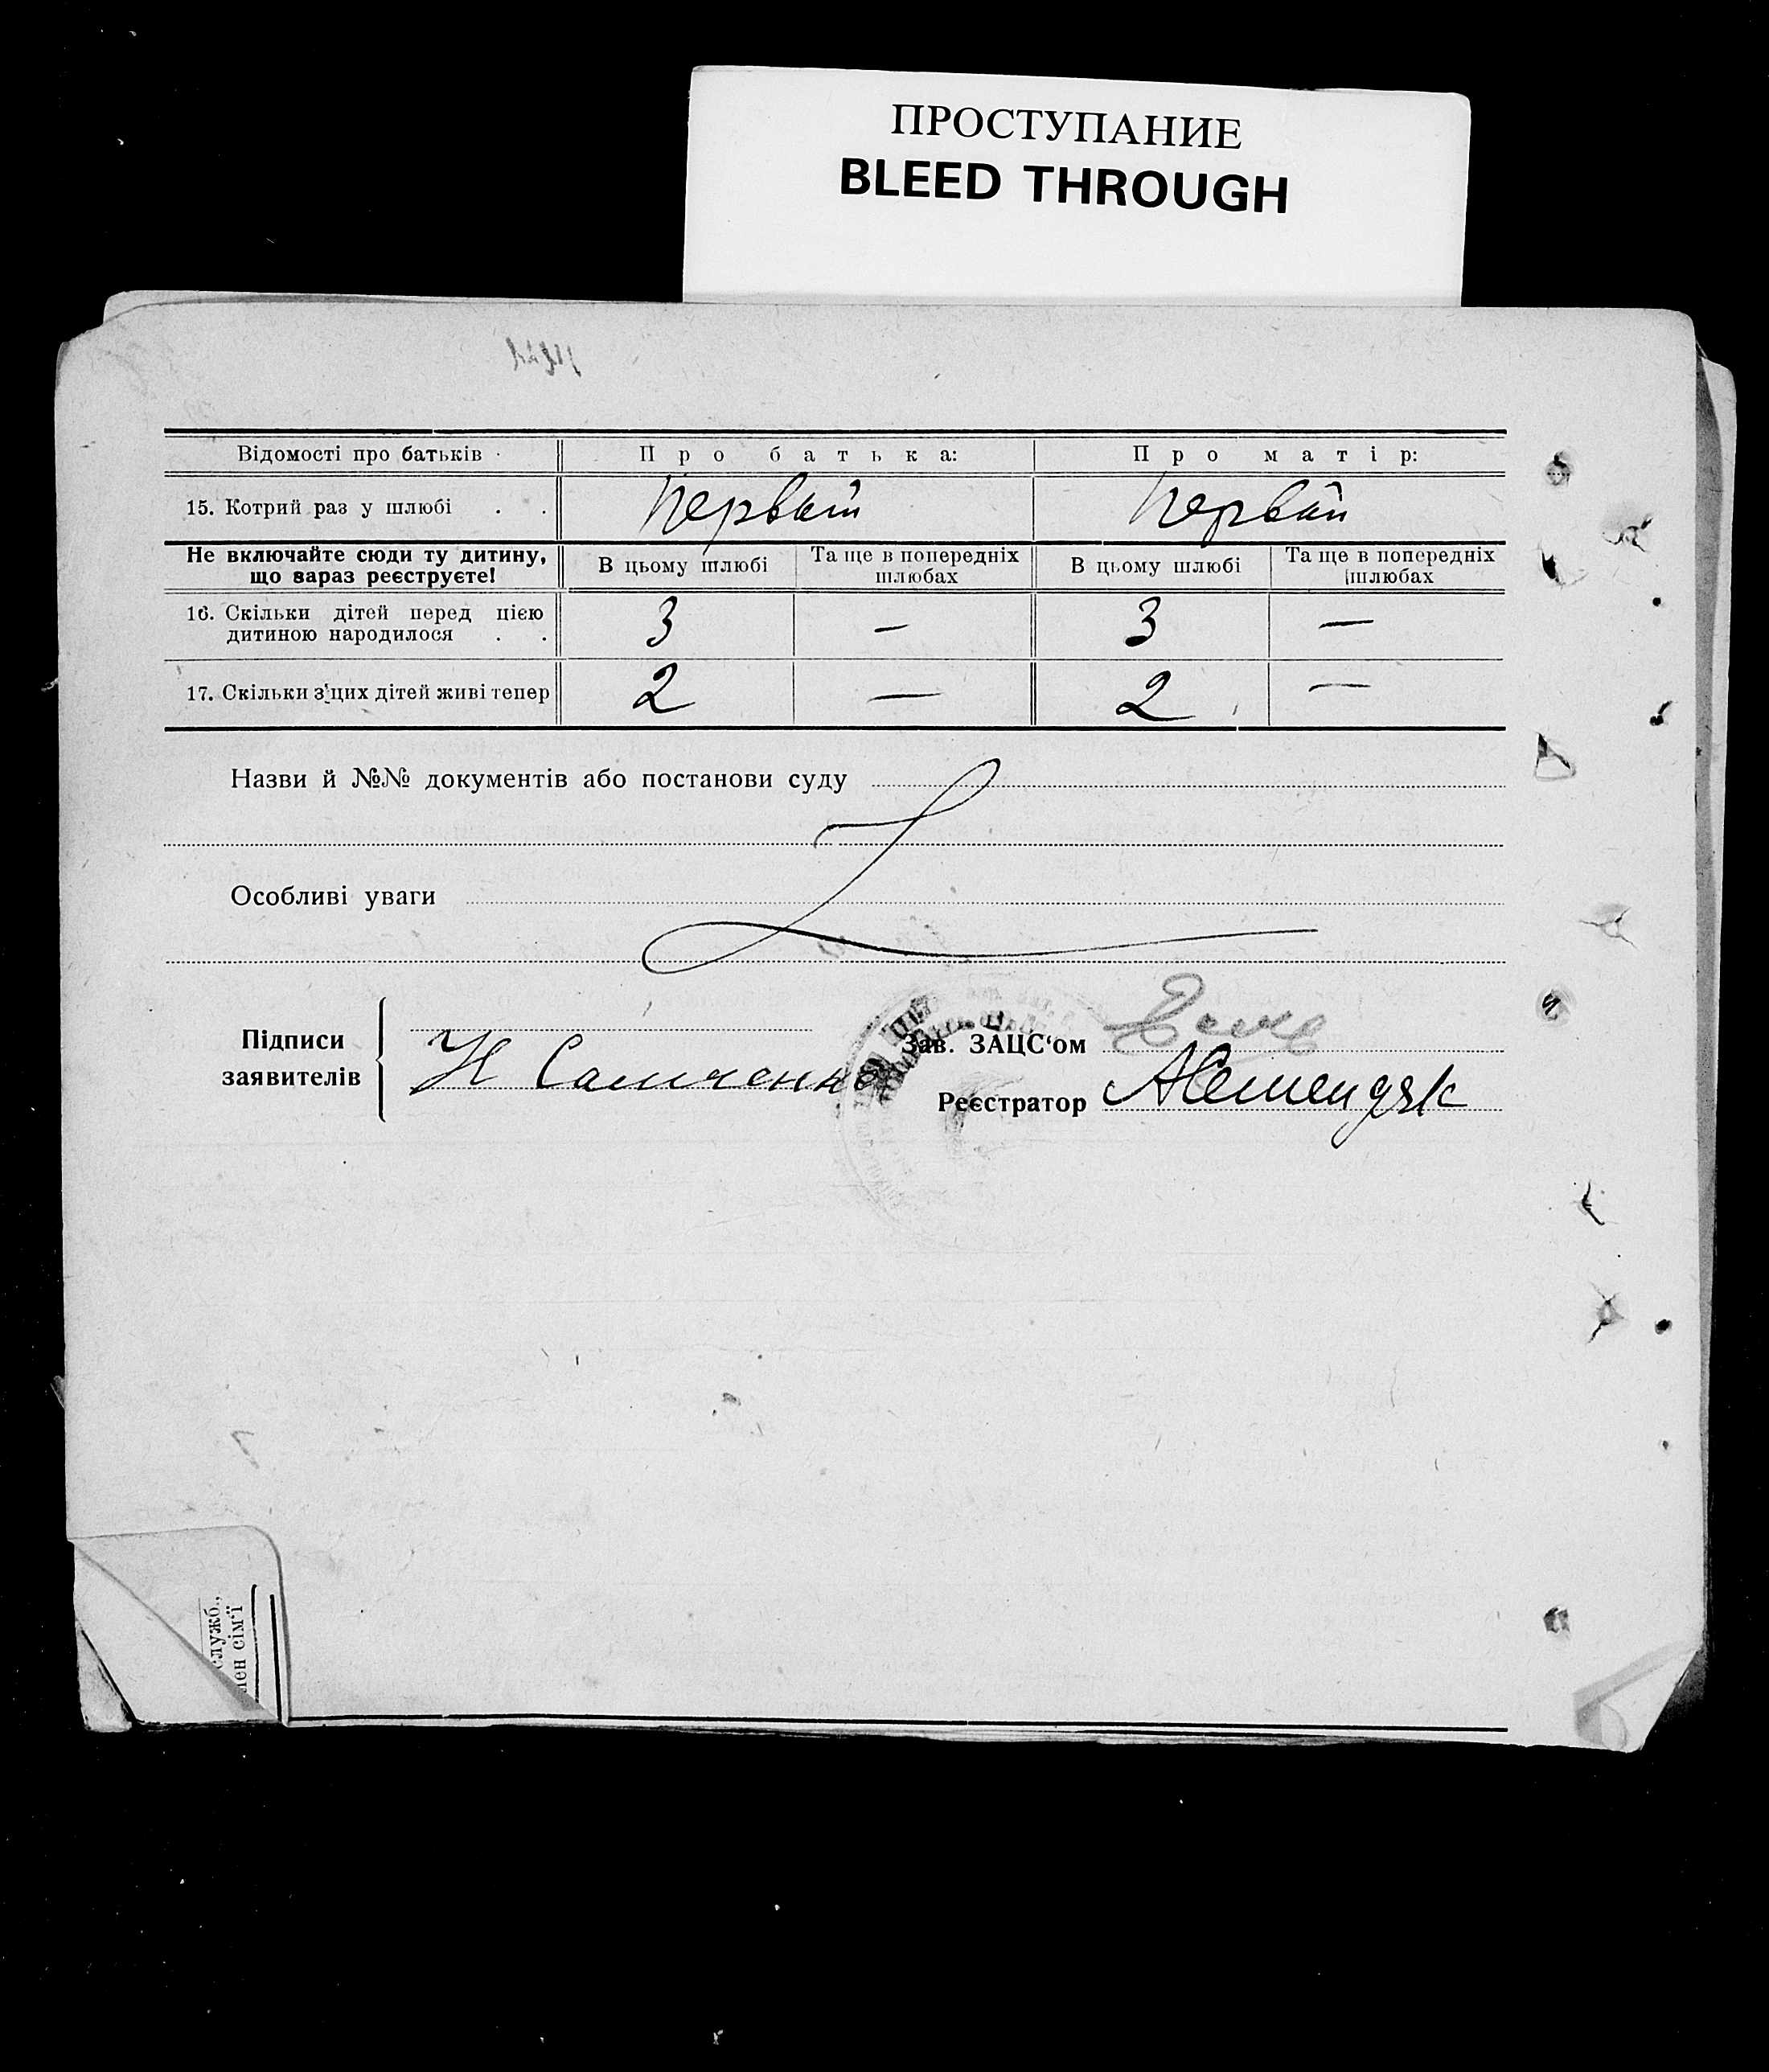 ПРОСТУПАНИЕ
BLEED THROUGH
Відомості про батьків Про батька: Про матір:
15. Котрий раз у шлюбі . . Первый Первый
Не включайте сюди ту дитину, що зараз реєструєте! В цьому шлюбі Та ще в попередніх шлюбах В цьому шлюбі Та ще в попередніх шлюбах
16. Скільки дітей перед цією дитиною народилося . . 3 — 3 —
17. Скільки з'цих дітей живі тепер 2 — 2 —
Назви й №№ документів або постанови суду
Особливі уваги
Підписи заявителів
Зав. ЗАЦС‘ом
Реєстратор
служб.,
лен сім‘ї